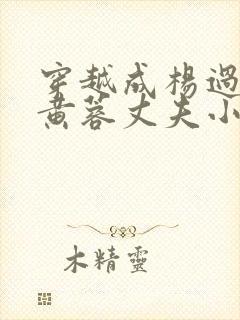 穿越成楊過
黃蓉丈夫小
木精靈